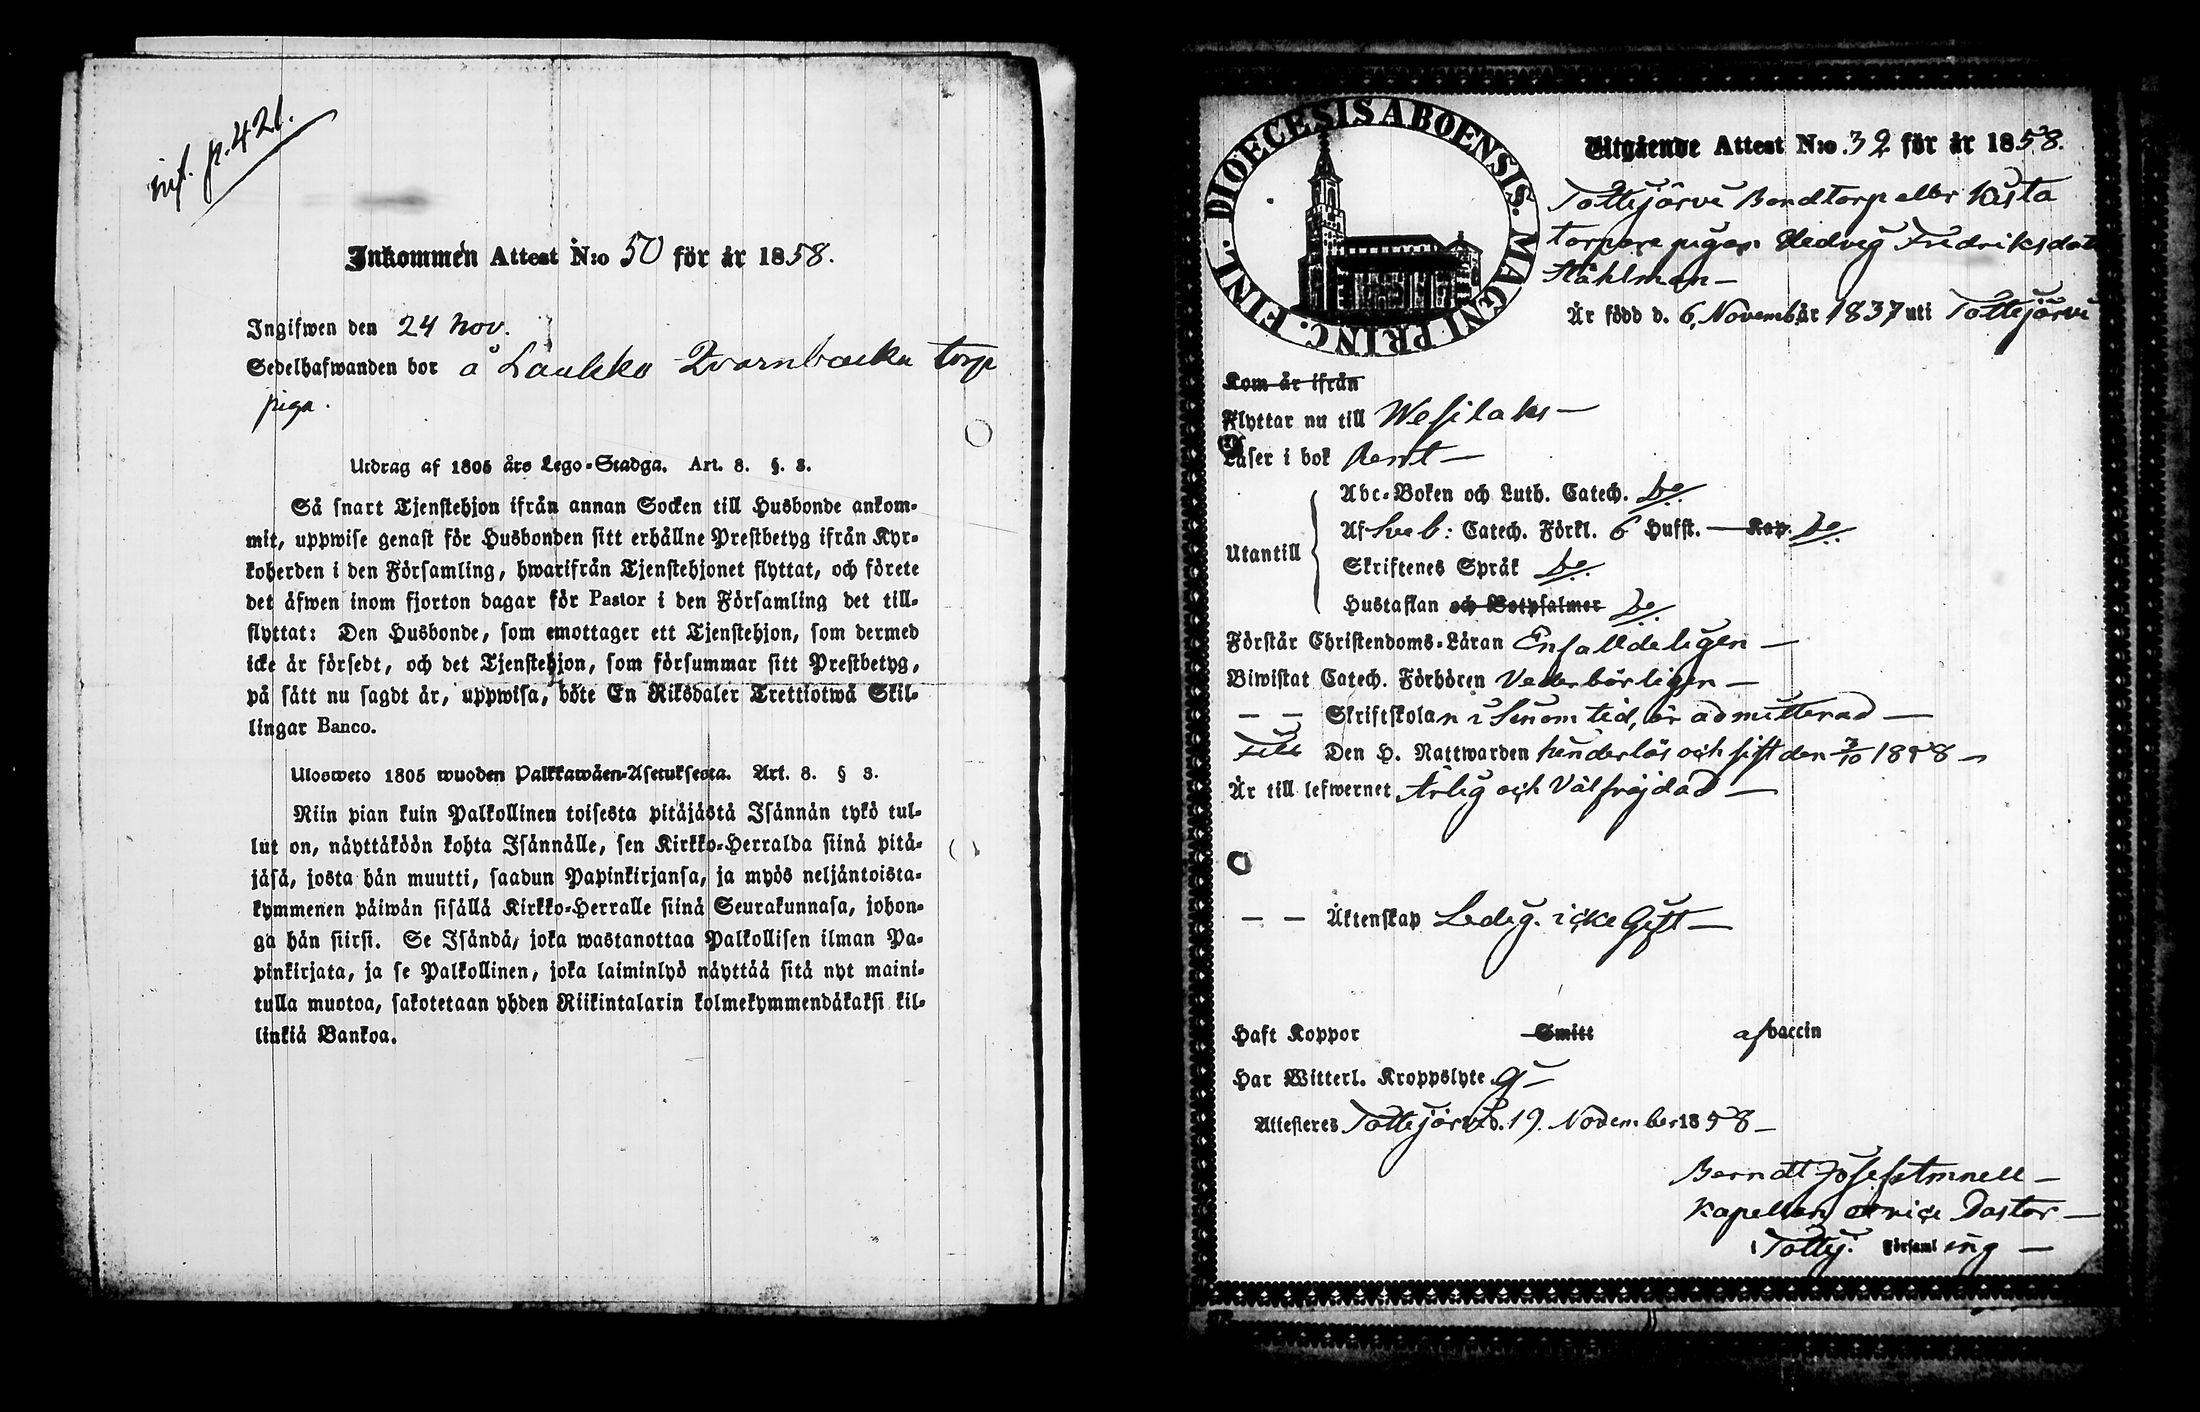 inf. p. 421.
Inkommen Attest N:o 50 för år 1858.
Ingifwen den 24 Nov.
Sedelhafwanden bor å Laukko Qvarnbacka torp
piga.
Utdrag af 1805 års Lego-Stadga. Art. 8. §. 3.
Så snart Tjenstehjon ifrån annan Socken till Husbonde ankom-
mit, uppwise genast för Husbonden sitt erhållne Prestbetyg ifrån Kyr-
koherden i den Församling, hwarifrån Tjenstehjonet flyttat, och förete
det äfwen inom fjorton dagar för Pastor i den Församling det till-
flyttat: Den Husbonde, som emottager ett Tjenstehjon, som dermed
icke är försedt, och det Tjenstehjon, som försummar sitt Prestbetyg,
på sätt nu sagdt är, uppwisa, böte En Riksdaler Trettiotwå Skil-
lingar Banco.
Ulosweto 1805 wuoden Palkkawäen-Asetuksesta. Art. 8. § 3.
Niin pian kuin Palkollinen toisesta pitäjästä Isännän tykö tul-
lut on, näyttäköön kohta Isännälle, sen Kirkko-Herralda siinä pitä-
jäsä, josta hän muutti, saadun Papinkirjansa, ja myös neljäntoista-
kymmenen päiwän sisällä Kirkko-Herralle siinä Seurakunnasa, johon-
ga hän siirsi. Se Isändä, joka wastanottaa Palkollisen ilman Pa-
pinkirjata, ja se Palkollinen, joka laiminlyö näyttää sitä nyt maini-
tulla muotoa, sakotetaan yhden Riikintalarin kolmekymmendäkaksi kil-
linkiä Bankoa.
DIOECESIS ABOENSIS. MAGNI PRINC. FINL.
Utgående Attest N:o 32 för år 1858.
Tottijärvi Bondtorp eller Kusta
torpare pigan Hedvig Fredriksdot
Ståhlman —
Är född d. 6. Novemb. år 1837 uti Tottijärvi
Kom är ifrån
Flyttar nu till Wesilaks —
Läser i bok Rent —
Utantill
Abc-Boken och Luth. Catech. do
Af Sveb: Catech. Förkl. 6 Hufst. — Kap. do
Skriftenes Språk do
Hustaflan och Botpsalmer do
Förstår Christendoms-Läran Enfalldeligen —
Biwistat Catech. Förhören Vederbörligen —
— — Skriftskolan i sinom tid, är admitterad —
Den H. Nattwarden hinderlös och sist den 3/10 1858 —
Är till lefwernet Ärlig och Välfräjdad —
— — Äktenskap Ledig. icke Gift —
Haft Koppor Smitt af vaccin
Har Witterl. Kroppslyte Ej —
Attesteres Tottijärvi d. 19. November 1858 —
Berndt Josef
Kapellan Pastor —
i Tottij: Församling —